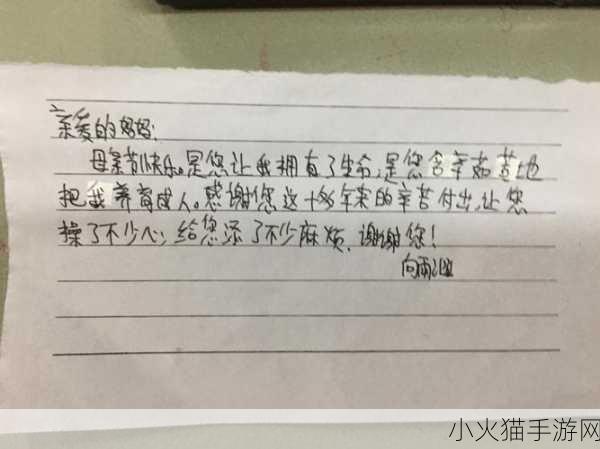 亲爱的妈妈:
母亲节快乐。是您让我拥有了生命,是您含辛茹苦地
把我养育成人。感谢您这十多年来的辛苦付出,让您
操了不少心,给您添了不少麻烦,谢谢您!
向雨
小火猫手游网